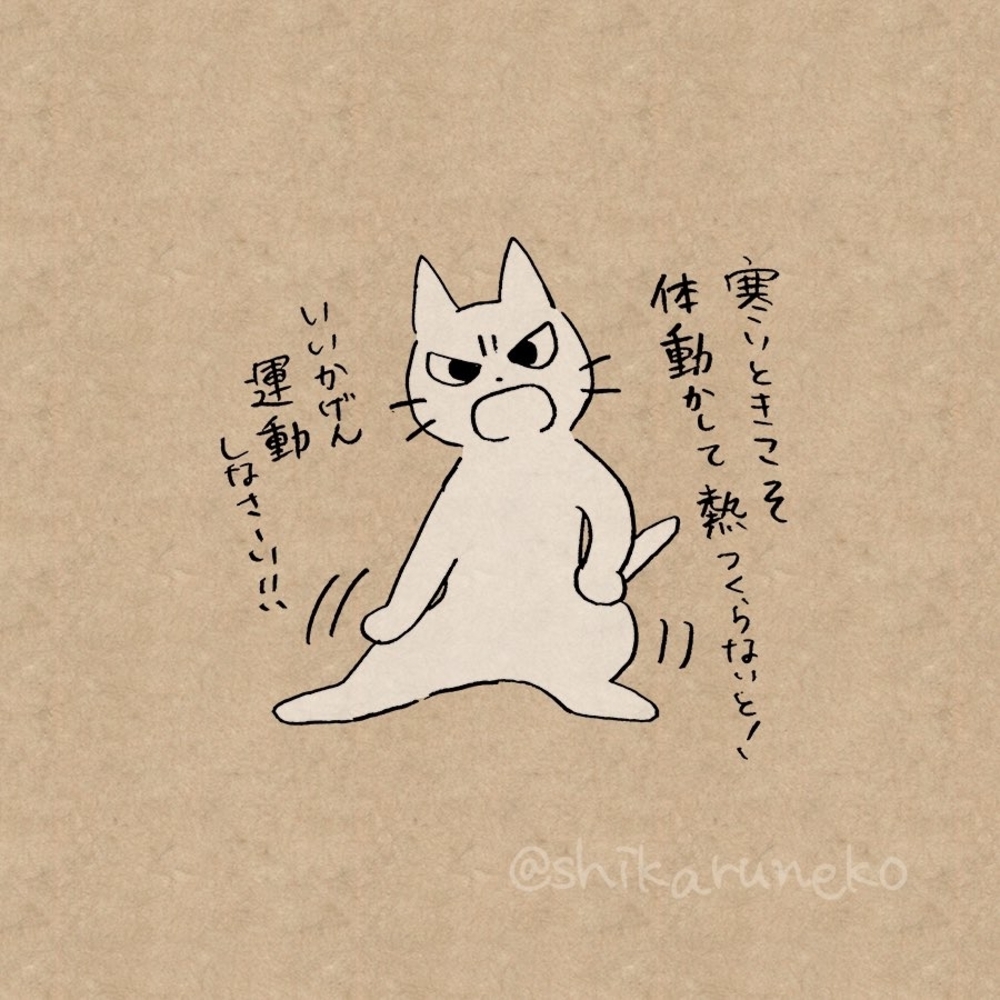 寒いときこそ
体動かして
熱つくらないと!
いいかげん
運動
しなさーい!!!
@shikaruneko